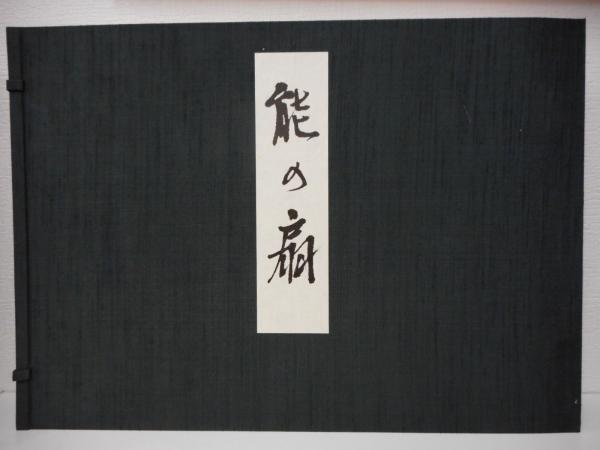 能の扇